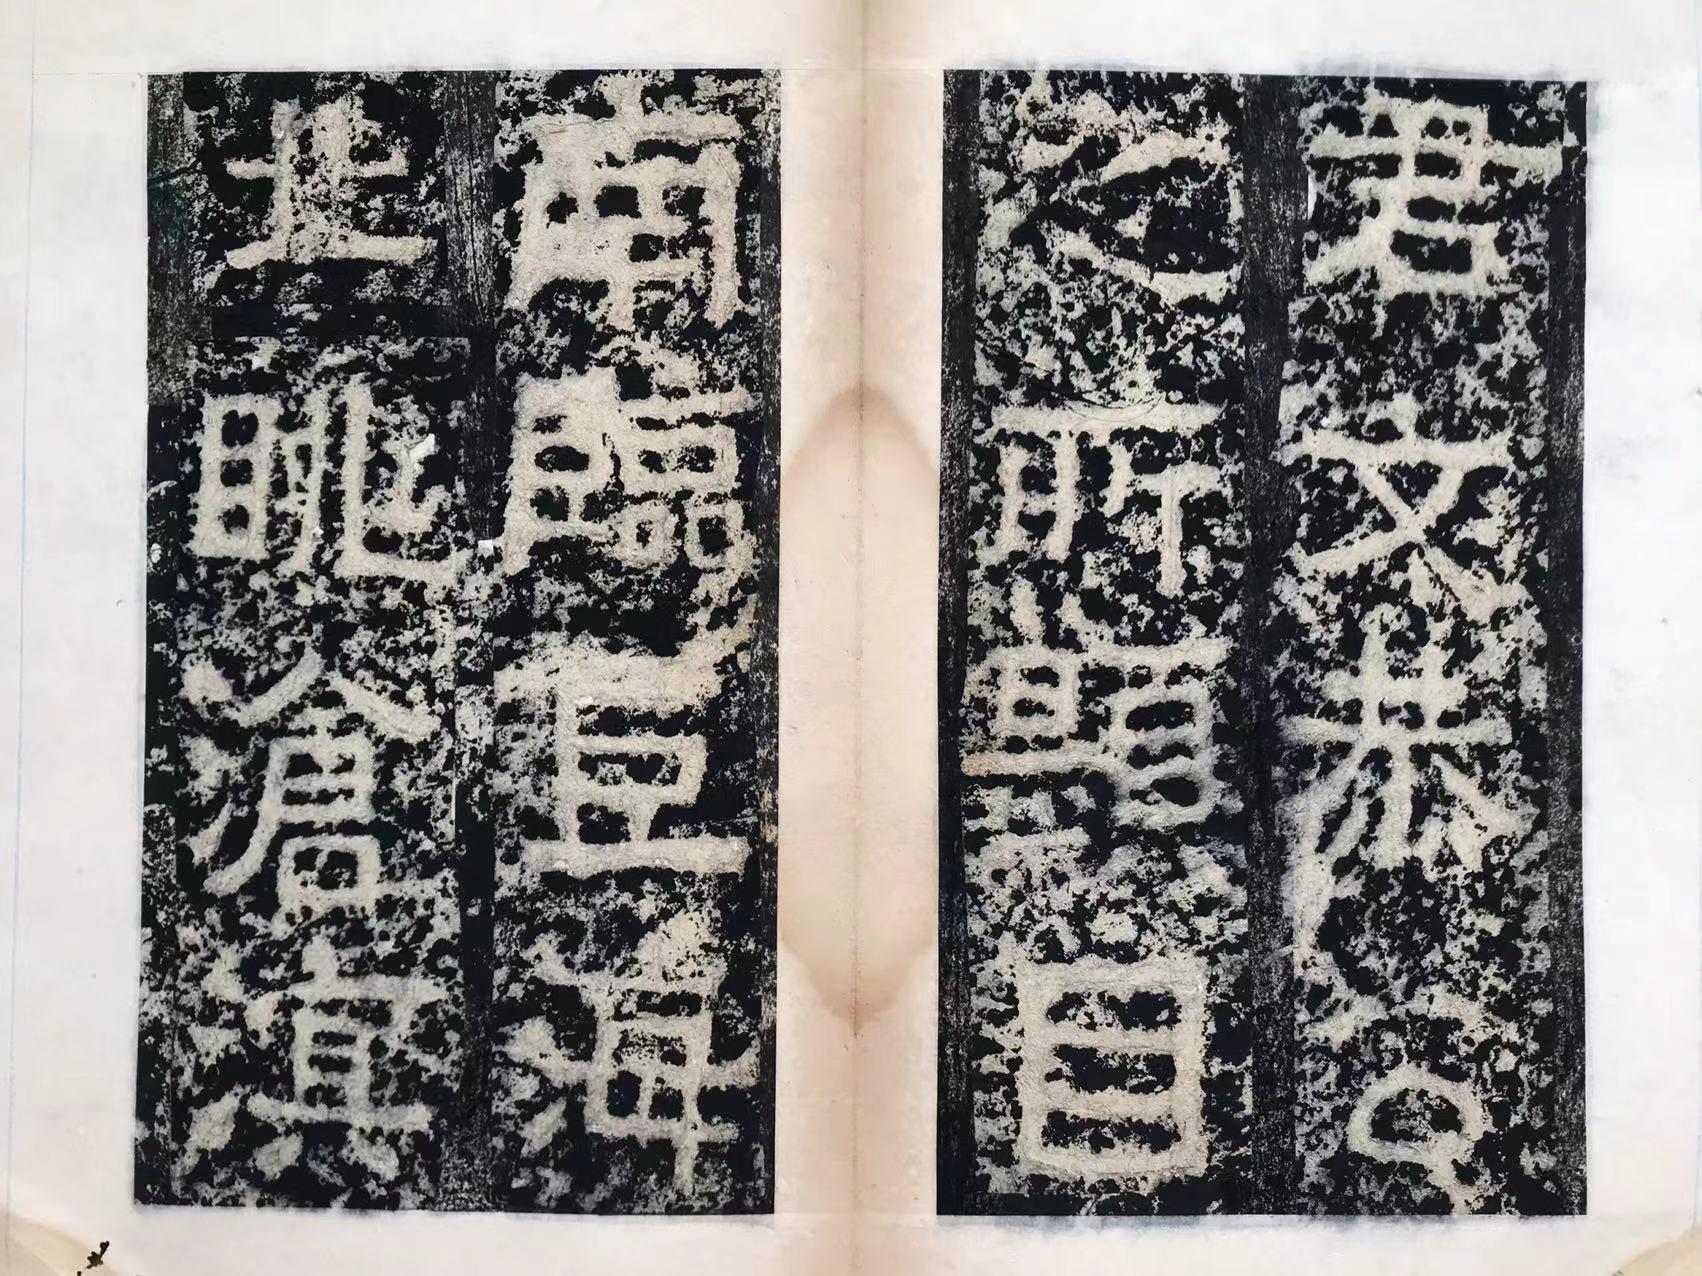 君文恭公
之所題目
南臨巨海
北眺滄溟